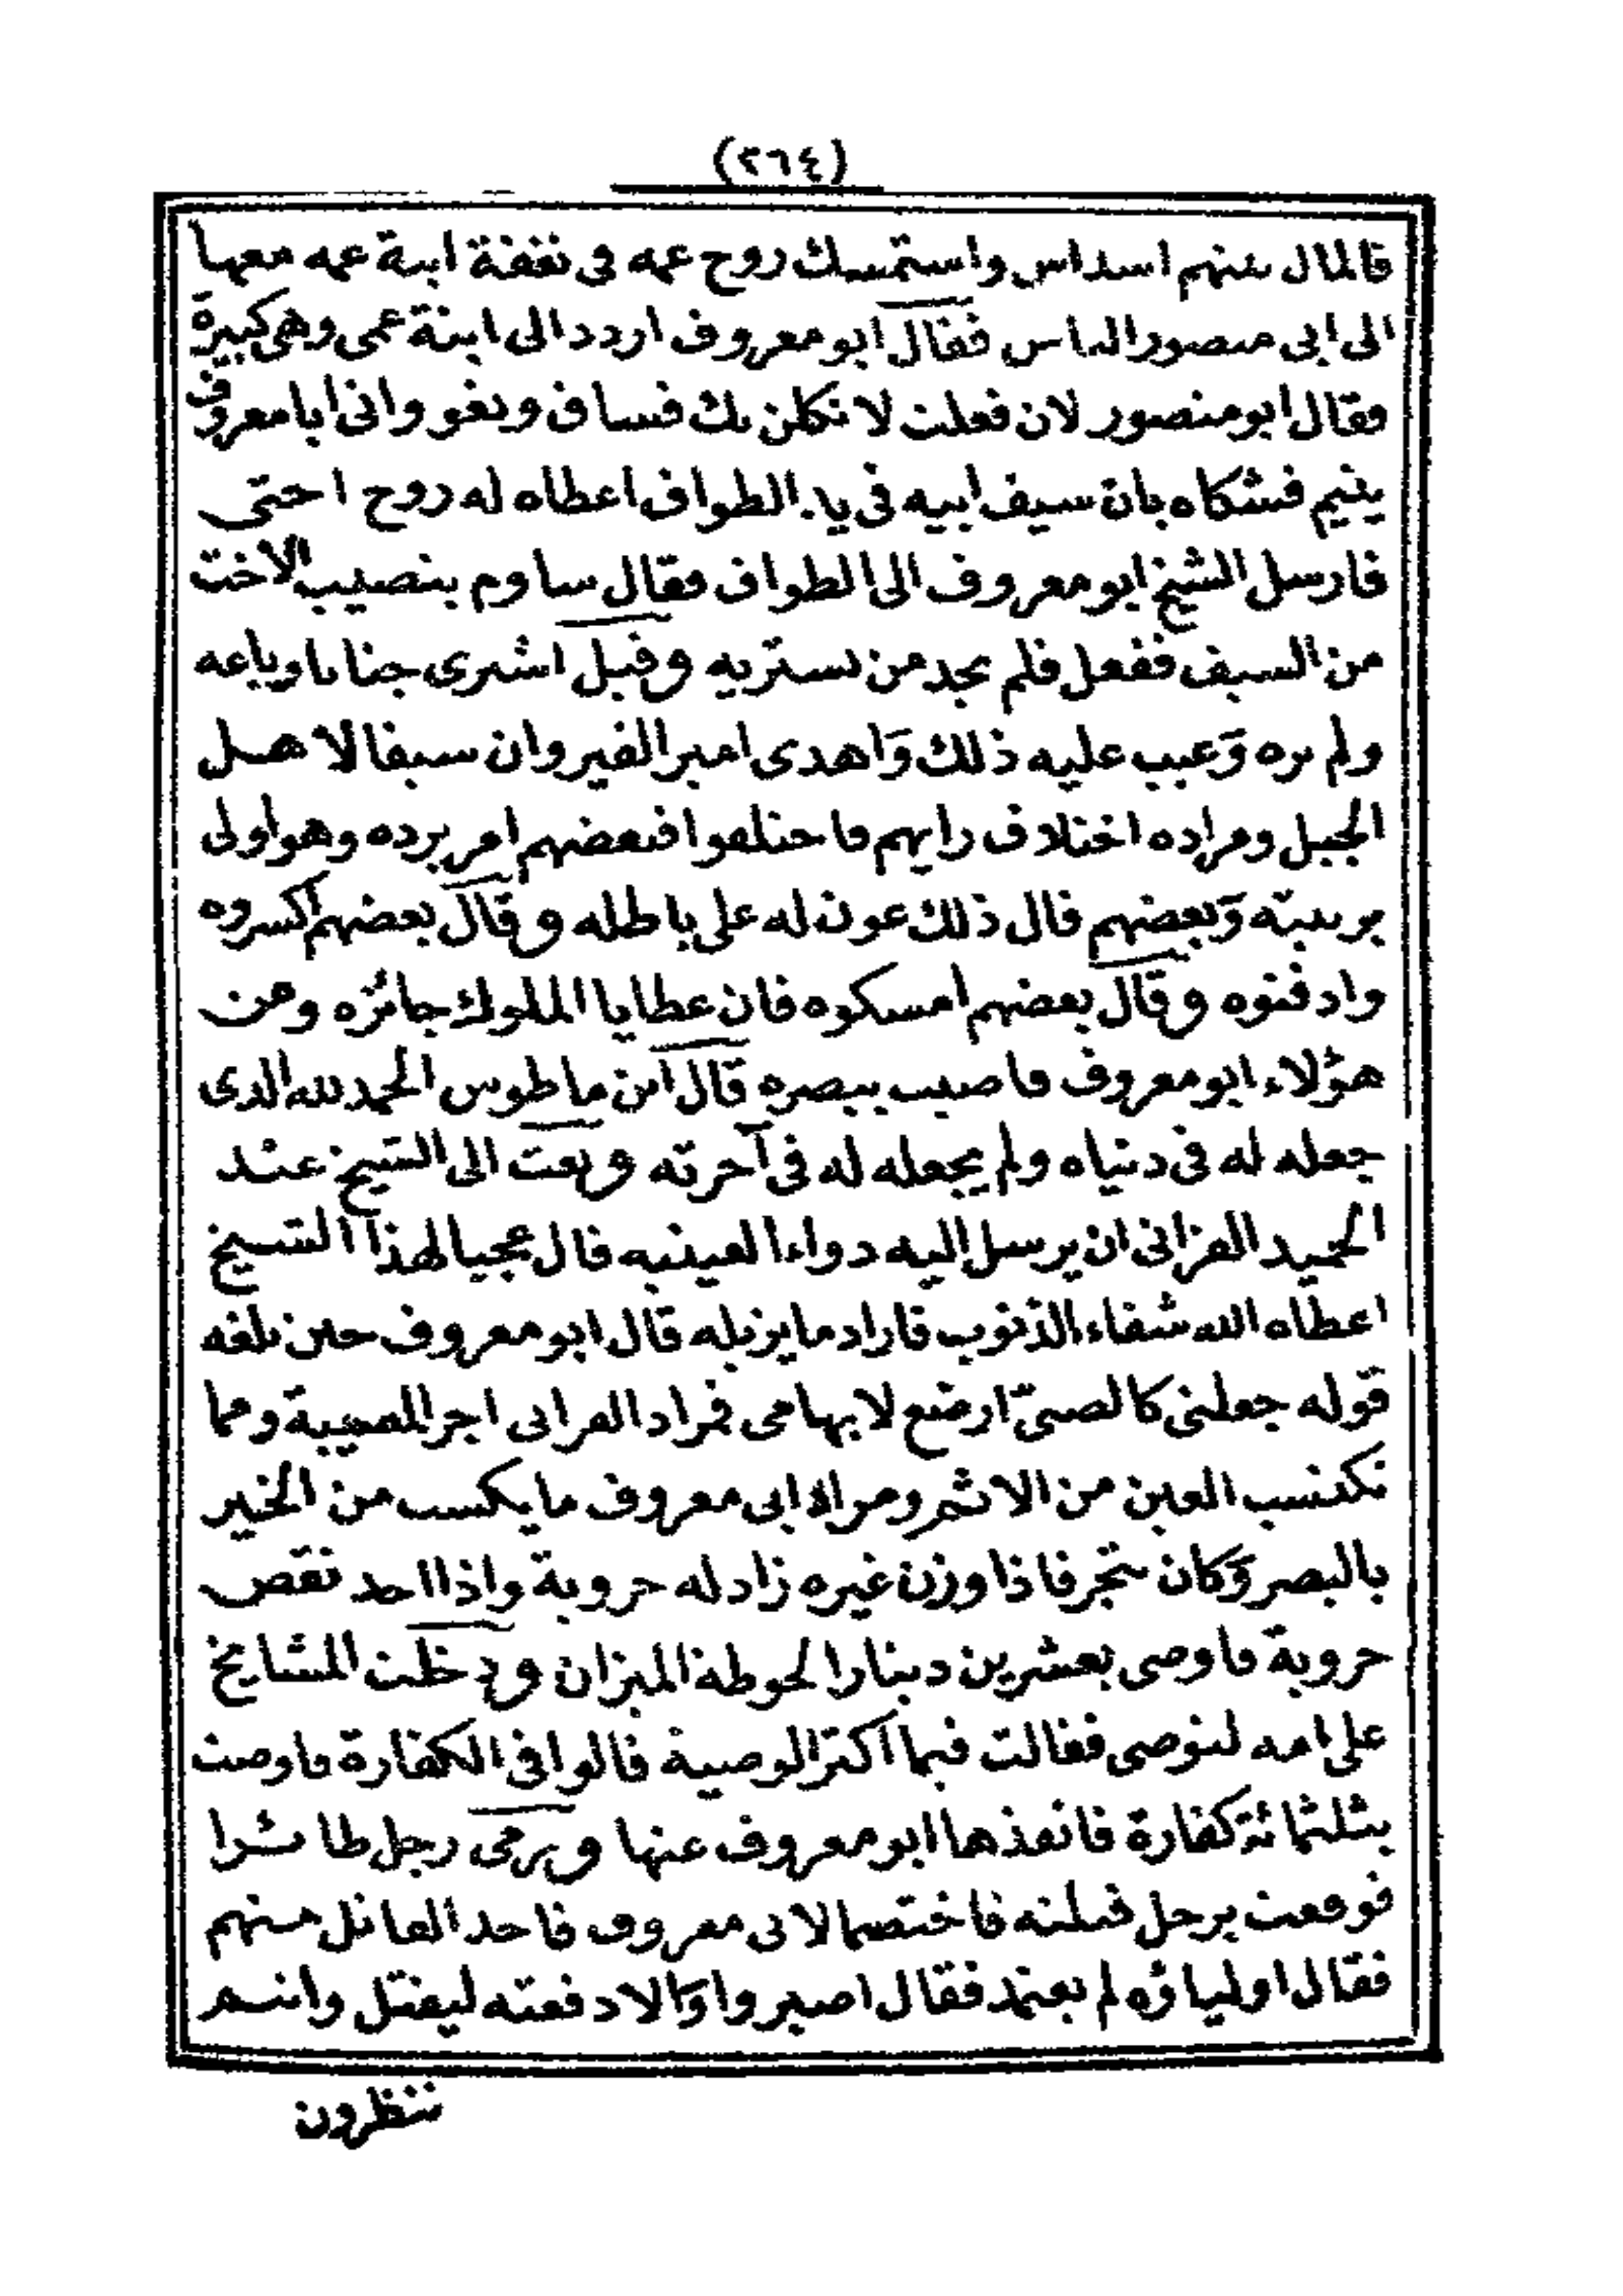 (٢٦٤)
فالمال بينهم اسداس واستمسك روح عمه فى نفقة ابنة عمه معها
الى ابى منصور الياس فقال ابو معروف اردد الى ابنة عمى وهى كبيرة
فقال ابو منصور لان فعلت لا نكلن بك فساف ونفو وانى ابا معروف
يتيم فشكاه بان سيف ابيه فى يد الطواف اعطاه له زوج احتى
فارسل الشيخ ابو معروف الى الطواف فقال ساوم بنصيب الاخت
من السيف ففعل فلم يجد من يستريه وقيل اشترى جنانا وباعه
ولم يره وعيب عليه ذلك واهدى امير القيروان سيفا لاهل
الجبل ومراده اختلاف رايهم فاختلفوا فبعضهم امر برده وهو اولى
بربيبته وبعضهم قال ذلك عون له على باطله وقال بعضهم اكسروه
وادفنوه وقال بعضهم امسكوه فان عطايا الملوك جائزه ومن
هؤلاء ابو معروف فاصيب ببصره قال ابن ماطوس الحمد لله الذى
جعله له فى دنياه ولم يجعله له فى آخرته وبعث الى الشيخ عند
الحميد الفزانى ان يرسل اليه دواء العينيه قال عجبا لهذا الشيخ
اعطاه الله شفاء الذنوب فاراد ما يزيله قال ابو معروف حين بلغه
قوله جعلنى كالصبىّ ارضع لابهامى فمراد الفزانى اجر المصيبة ومما
تكتسب العين من الاثم ومراد ابى معروف ما يكسب من الخير
بالبصر وكان يتجر فاذا وزن غيره زاد له خروبة واذا اخذ نقص
خروبة فاوصى بعشرين دينارا لحوطة الميزان ودخلت المشايخ
على امه لتوصى فقالت فيما اكثر الوصية قالوا فى الكفارة فاوصت
بثلثمائة كفارة فانفذها ابو معروف عنها ورمى رجل طائرا
فوقعت برجل فقتلته فاختصما لابى معروف فاخذ القاتل منهم
فقال اولياؤه لم يعتمد فقال اصبروا والا دفعته ليقتل وانتم
تنظرون